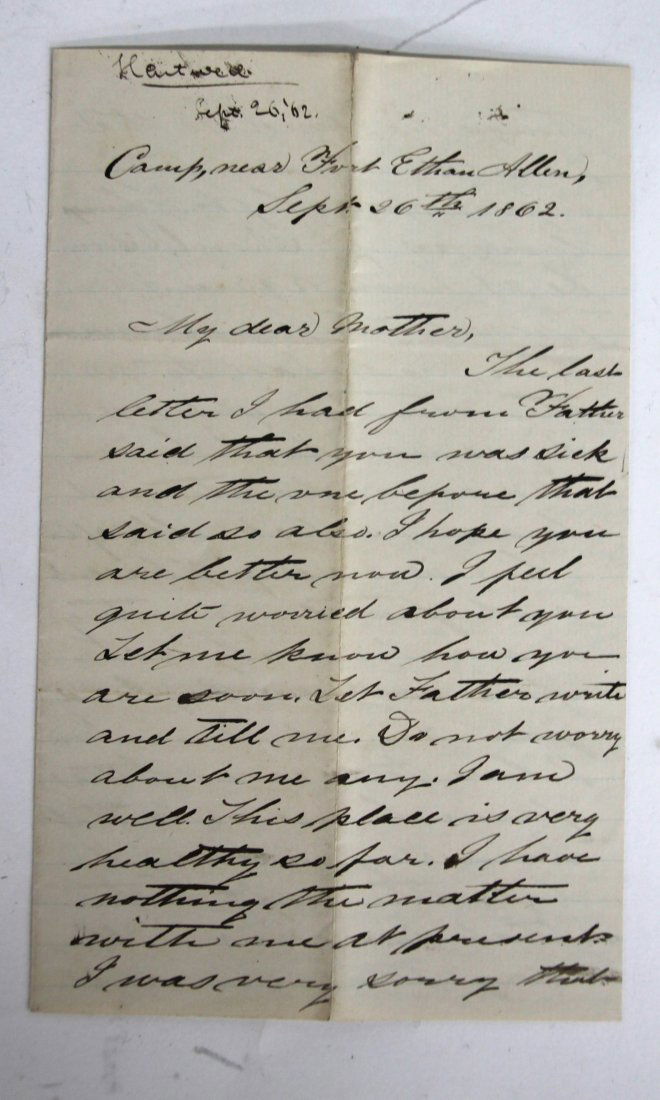 Hartwell
Sept. 26, '62.
Camp, near Fort Ethan Allen,
Sept. 26th 1862.
My dear Mother,
The last
letter I had from Father
said that you was sick
and the one before that
said so also. I hope you
are better now. I feel
quite worried about you
Let me know how you
are soon. Let Father write
and tell me. Do not worry
about me any. I am
well. This place is very
healthy so far. I have
nothing the matter
with me at present.
I was very sorry that